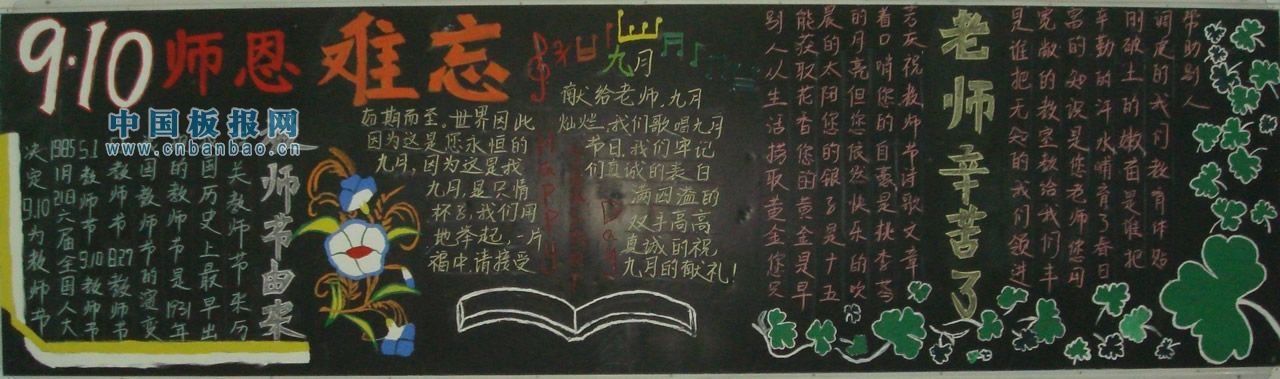 9·10 师恩难忘
中国板报网
www.cnbanbao.cn
师节由来
关教师节来历
国历史上最早出
的教师节是1931年
国教师节的演变
教师节 8.27教师节
5.1教师节 9.10教师节
1985 1月21日六届全国人大
决定9.10为教师节
九月
献给老师,九月
如期而至。世界因此
灿烂,我们歌唱九月
因为这是您永恒的
节日,我们牢记
九月,因为这是我
们真诚的表白
九月,是只情
满四溢的
杯子,我们用
双手高高
地举起,一片
真诚的祝
福中,请接受
九月的献礼!
Happy
Day
别人从生活捞取黄金您只
能获取花香您的黄金是早
晨的太阳您的银子是十五
的月亮但您依然快乐的吹
着口哨您的自豪是桃李芬
芳庆祝教师节诗歌文章
老师辛苦了
是谁把无知的我们领进
宽敞的教室教给我们丰
富的知识是您老师您用
辛勤的汗水哺育了春日
刚破土的嫩苗是谁把
调皮的我们教育体贴
帮助别人